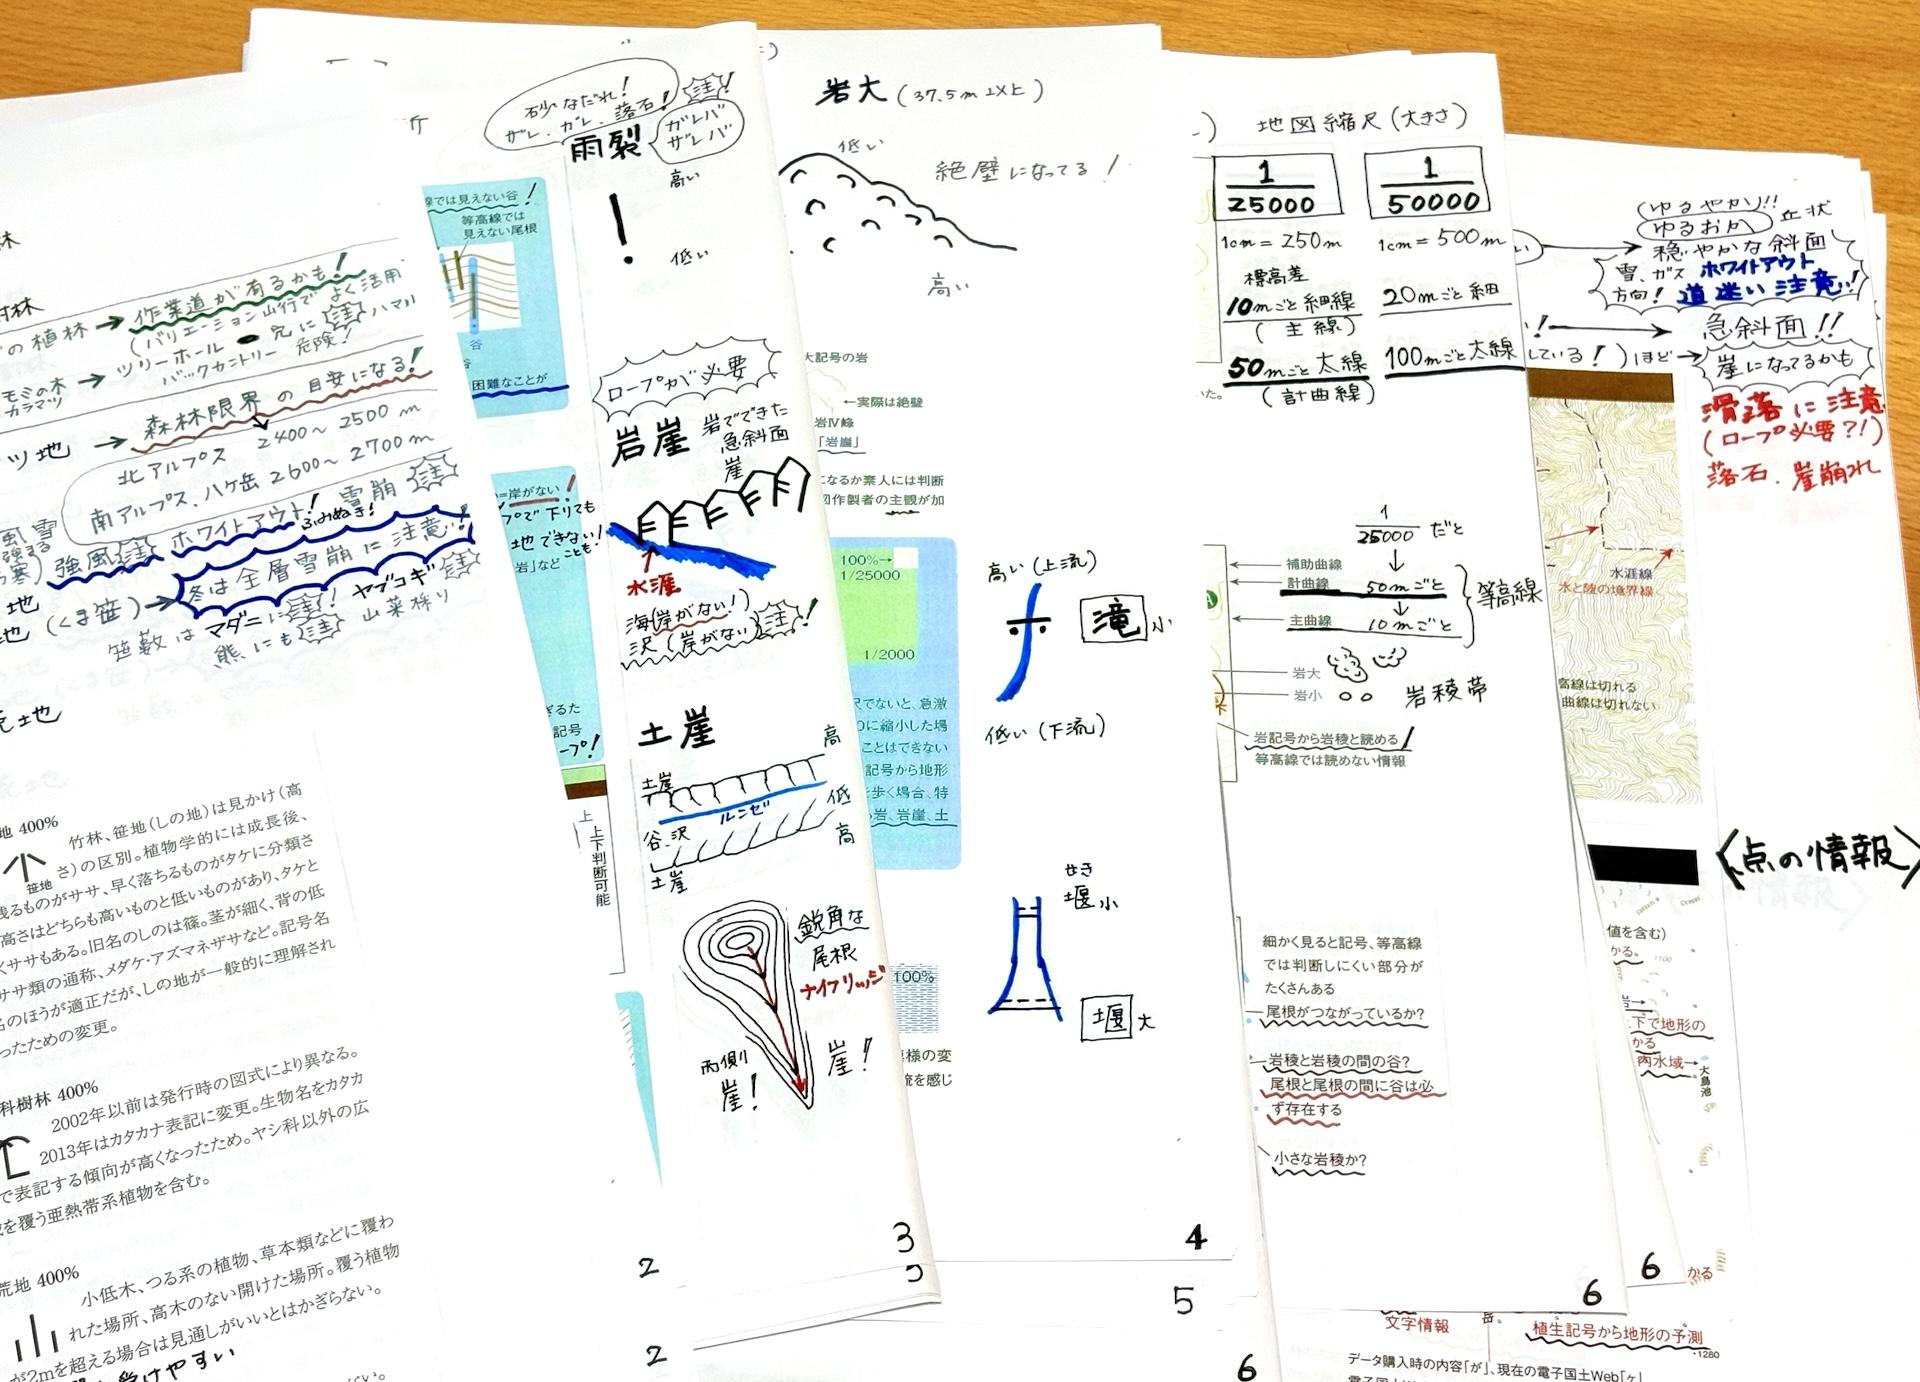 林
林
の植林 → 作業道が有るかも!
(バリエーション山行で よく活用
モミの木
カラマツ
→ ツリーホール 穴に 注 ハマル
バックカントリー 危険!
ツ地 → 森林限界 の 目安になる!
北アルプス 2400～2500m
南アルプス、八ヶ岳 2600～2700m
強風 注 ホワイトアウト! 雪崩 注
ふみぬき!
地 (くま笹) → 冬は全層雪崩に注意!
笹薮は マダニに 注! ヤブコギ 注
熊にも 注 山菜採り
地
地 400%
笹地
竹林、笹地(しの地)は見かけ(高
さ)の区別。植物学的には成長後、
残るものがササ、早く落ちるものがタケに分類さ
高さはどちらも高いものと低いものがあり、タケと
くササもある。旧名のしのは篠。茎が細く、背の低
ササ類の通称、メダケ・アズマネザサなど。記号名
名のほうが適正だが、しの地が一般的に理解され
ったための変更。
科樹林 400%
2002年以前は発行時の図式により異なる。
2013年はカタカナ表記に変更。生物名をカタカ
で表記する傾向が高くなったため。ヤシ科以外の広
を覆う亜熱帯系植物を含む。
荒地 400%
小低木、つる系の植物、草本類などに覆わ
れた場所、高木のない開けた場所。覆う植物
が2mを超える場合は見通しがいいとはかぎらない。
けやすい
線では見えない谷!
等高線では
見えない尾根
谷
困難なことが
=岸がない!
プで下りても
地できない!
ことも!
岩」など
ぎるた
記号
ープ!
上下判断可能
2
2
砂なだれ!
ザレ、ガレ、落石! 注!
雨裂
ガレバ
ザレバ
!
高い
低い
ロープが必要
岩崖
岩でできた
急斜面
崖
水涯
海(岸がない!)
沢(岸がない) 注!
土崖
土崖
高
ルンゼ
低
谷、沢
高
土崖
鋭角な
尾根
ナイフリッジ
両側
崖!
崖!
3
岩大(37.5m以上)
低い
絶壁になってる!
高い
大記号の岩
←実際は絶壁
岩Ⅳ峰
「岩崖」
になるか素人には判断
図作製者の主観が加
100%→
1/25000
1/2000
尺でないと、急激
に縮小した場
ことはできない
記号から地形
を歩く場合、特
岩、岩崖、土
100%
模様の変
流を感じ
高い(上流)
滝 小
低い(下流)
せき
堰 小
堰 大
4
5
6
地図縮尺(大きさ)
1/25000
1/50000
1cm = 250m
1cm = 500m
標高差
10mごと細線
(主線)
20mごと細
50mごと太線
(計曲線)
100mごと太線
1/25000 だと
↓
補助曲線
計曲線 50mごと
↓
主曲線 10mごと
等高線
岩大
岩小
岩稜帯
岩記号から岩稜と読める!
等高線では読めない情報
細かく見ると記号、等高線
では判断しにくい部分が
たくさんある
尾根がつながっているか?
岩稜と岩稜の間の谷?
尾根と尾根の間に谷は必
ず存在する
小さな岩稜か?
6
(ゆるやかり!!
ゆるおか 丘状
穏やかな斜面
雪、ガス ホワイトアウト
方向! 道迷い 注意!!
! → 急斜面!!
している!)ほど→ 崖になってるかも
滑落に注意
(ロープ必要?!)
落石、崖崩れ
水涯線
水と陸の境界線
高線は切れる
曲線は切れない
〈点の情報〉
値を含む)
かる。
下で地形の
かる
内水域→
大鳥池
6
かる
文字情報
岳。
植生記号から地形の予測
・1280
データ購入時の内容「が」、現在の電子国土Web「ヶ」